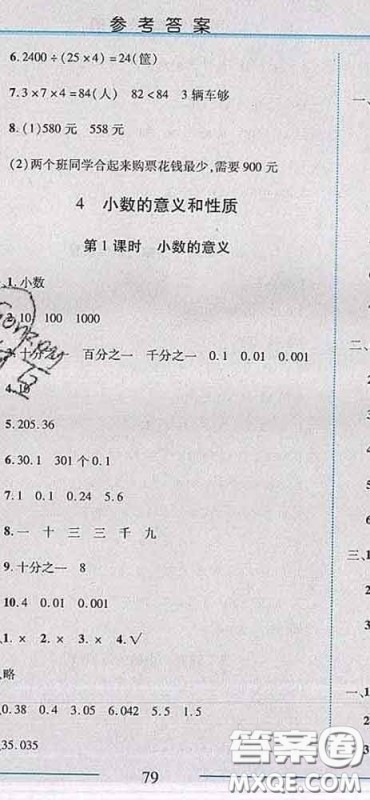 参考答案
6.2400÷(25×4)=24(筐)
7.3×7×4=84(人) 82<84 3辆车够
8.(1)580元 558元
(2)两个班同学合起来购票花钱最少,需要900元
4 小数的意义和性质
第1课时 小数的意义
1.小数
2.10 100 1000
十分之一 百分之一 千分之一 0.1 0.01 0.001
4.10
5.205.36
6.30.1 301个0.1
7.1 0.1 0.24 5.6
8.一 十 三 三 千 九
9.十分之一 8
10.4 0.01 0.001
1.× 2.× 3.× 4.√
略
0.38 0.4 3.05 6.042 5.5 0.9
35.035
79
一、
二、
1
2
3
4
三、1
2
3
一、1
2
3
答案圈
MXQE.COM